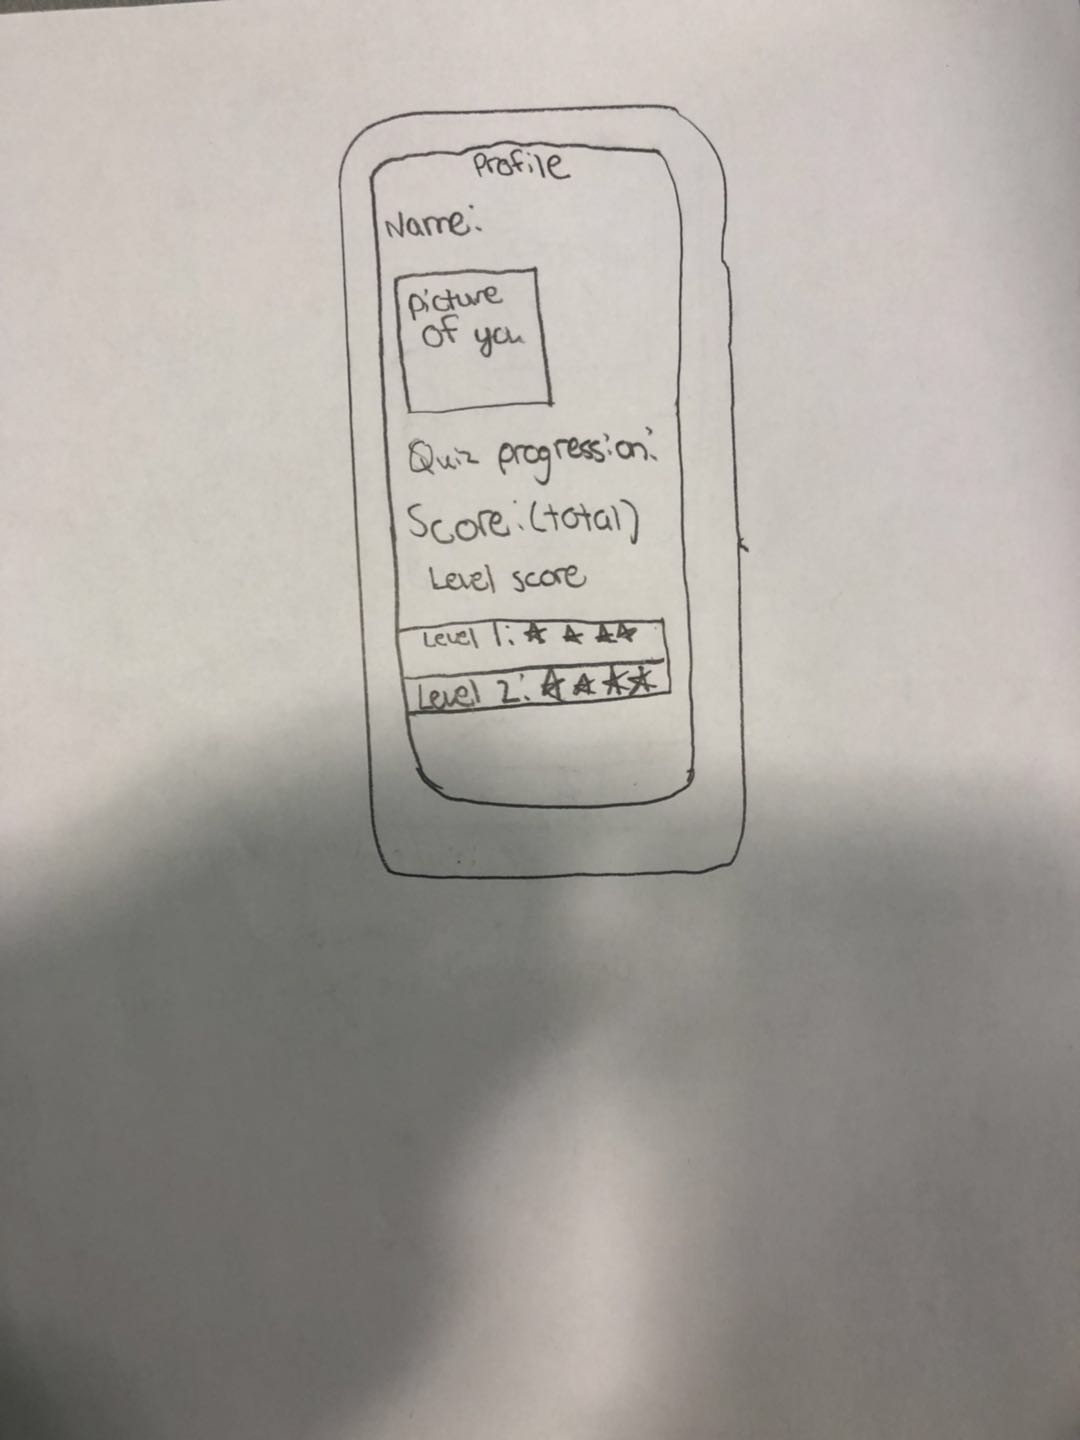 Profile
Name:
picture
of you
Quiz progression:
Score:(total)
Level score
Level 1: ☆ ☆ ☆☆
Level 2: ☆ ☆ ☆☆